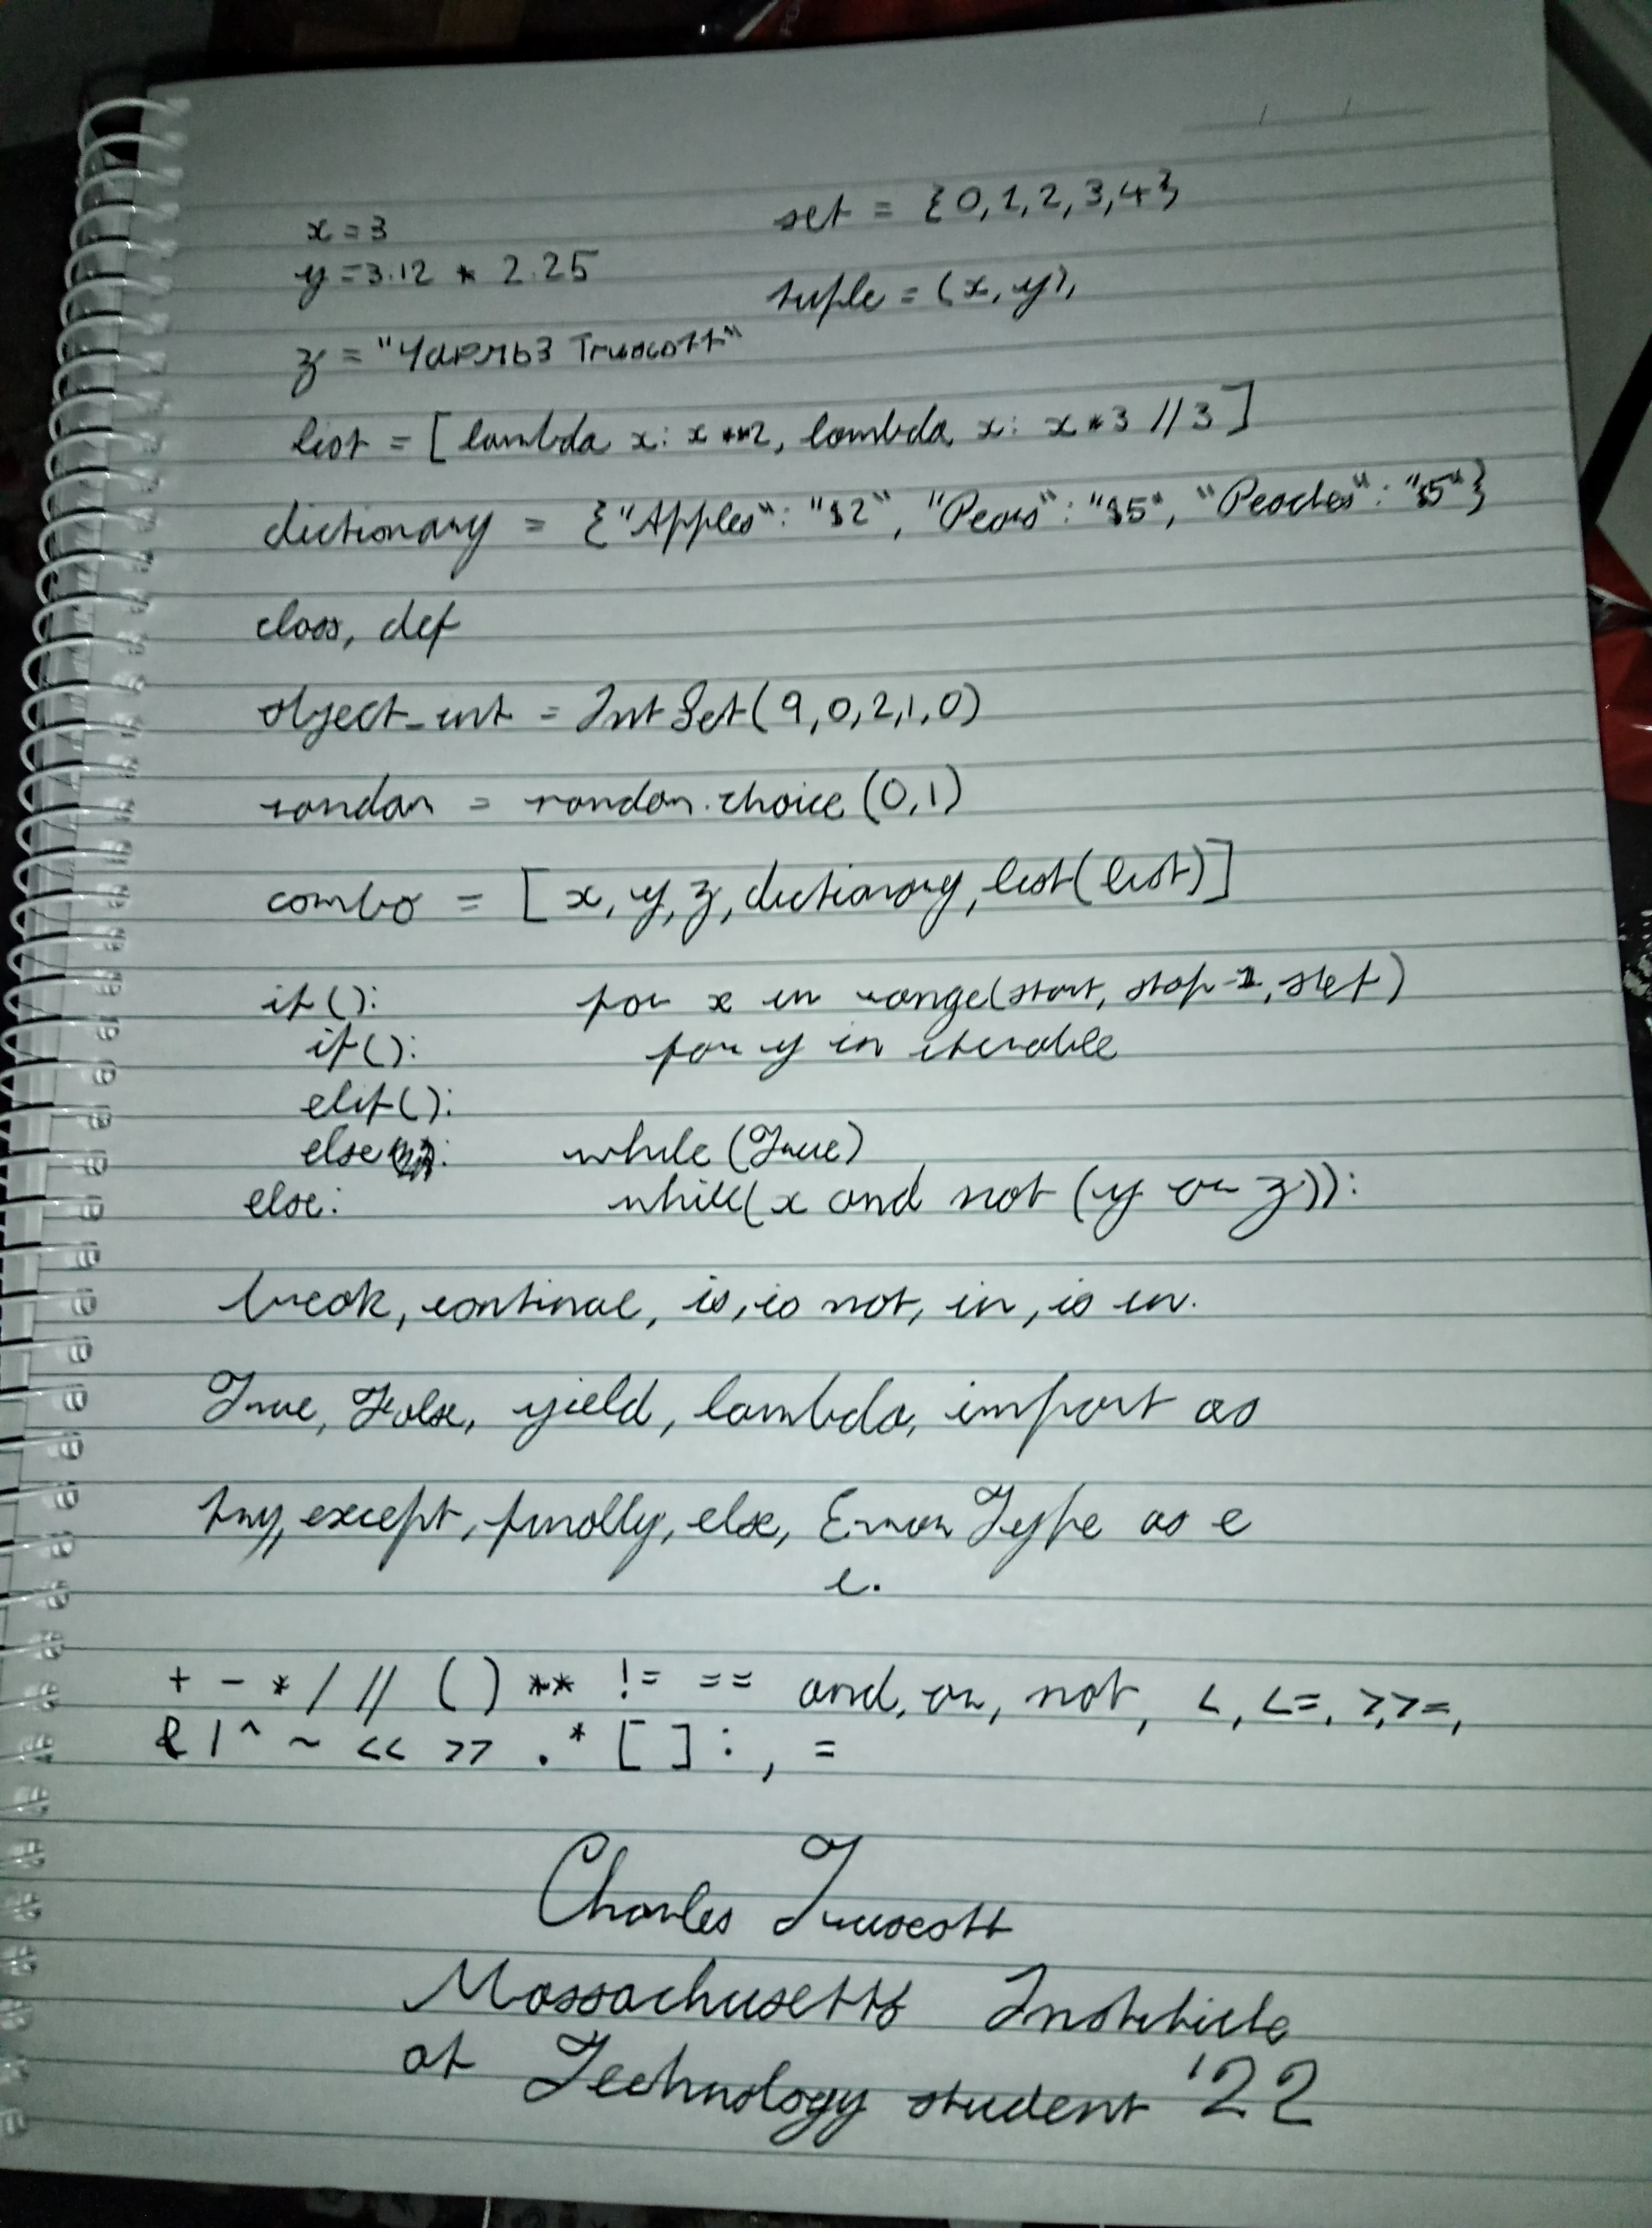 x = 3
y = 3.12 * 2.25
z = "Чарльз Truscott"
set = {0,1,2,3,4}
tuple = (x, y),
list = [lambda x: x**2, lambda x: x*3 // 3]
dictionary = {"Apples": "$2", "Pears": "$5", "Peaches": "$5"}
class, def
object_int = IntSet(9,0,2,1,0)
random = random.choice(0,1)
combo = [x, y, z, dictionary, list(list)]
if():
if():
elif():
else:
else:
for x in range(start, stop-1, step)
for y in iterable
while (True)
while(x and not (y or z)):
break, continue, is, is not, in, is in.
True, False, yield, lambda, import as
try, except, finally, else, ErrorType as e
e.
+ - * / // ( ) ** != == and, or, not, <, <=, >, >=,
& | ^ ~ << >> . * [ ] : , =
Charles Truscott
Massachusetts Institute
of Technology student '22